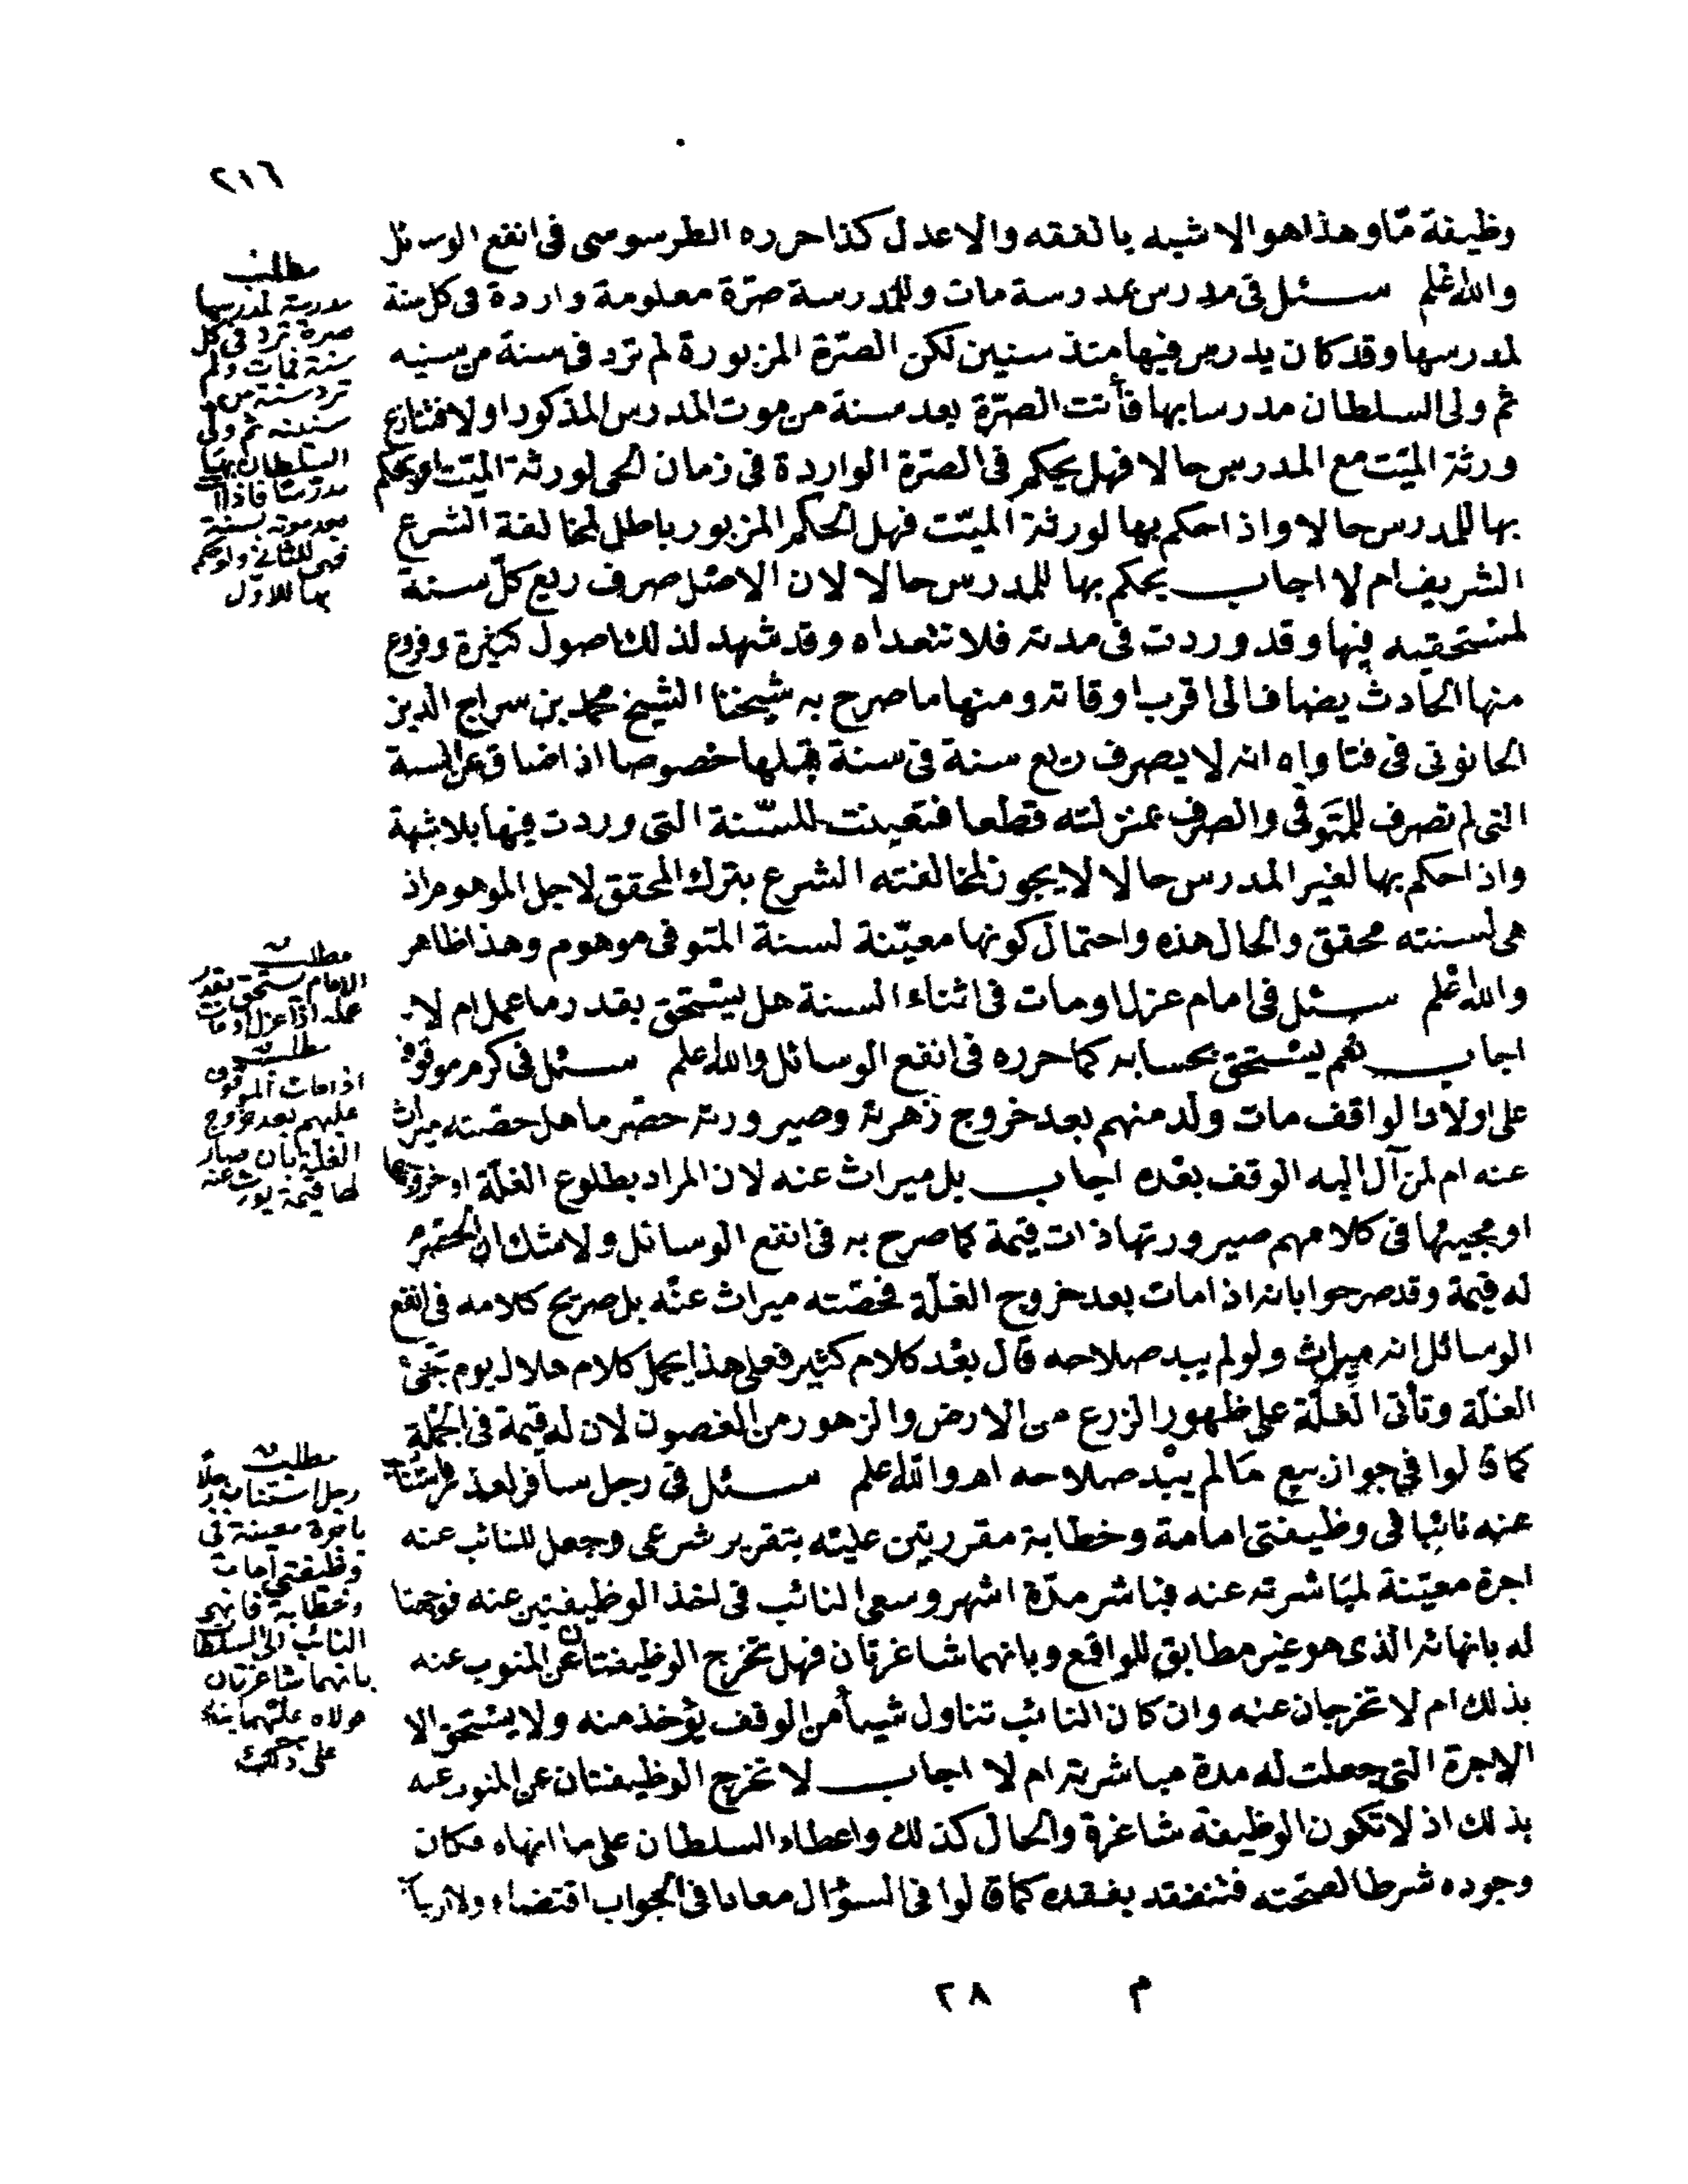 ٢١٦
وظيفة مّا وهذا هو الاشبه بالفقه والاعدل كذا حرره الطرسوسى فى انفع الوسائل
والله علم سئل فى مدرس بمدرسة مات وللمدرسة صرّة معلومة واردة فى كل سنة
لمدرسها وقد كان يدرس فيها منذ سنين لكن الصرّة المزبورة لم ترد فى سنة من سنيه
ثم ولى السلطان مدرسا بها فأتت الصرّة بعد سنة من موت المدرس المذكور اولا فتنازع
ورثة الميّت مع المدرس حالا فهل يحكم فى الصرّة الواردة فى زمان الحى لورثة الميّت او يحكم
بها للمدرس حالا واذا حكم بها لورثة الميّت فهل الحكم المزبور باطل لمخالفة الشرع
الشريف ام لا اجاب يحكم بها للمدرس حالا لان الاصل صرف ريع كلّ سنة
لمستحقيه فيها وقد وردت فى مدته فلا تتعداه وقد شهد لذلك اصول كثيرة وفروع
منها الحادث يضاف الى اقرب اوقاته ومنها ما صرح به شيخنا الشيخ محمد بن سراج الدين
الحانوتى فى فتاواه انه لا يصرف ريع سنة فى سنة قبلها خصوصا اذا ضاق عن السنة
التى لم تصرف للمتوفى والصرف بمنزلته قطعا فتعينت للسّنة التى وردت فيها بلا شبهة
واذا حكم بها لغير المدرس حالا لا يجوز لمخالفته الشرع بترك المحقق لاجل الموهوم اذ
هى لسنته محقق والحال هذه واحتمال كونها معيّنة لسنة المتوفى موهوم وهذا ظاهر
والله علم سئل فى امام عزل او مات فى اثناء السنة هل يستحق بقدر ما عمل ام لا
اجاب نعم يستحق بحسابه كما حرره فى انفع الوسائل والله علم سئل فى كرم موقوف
على اولاد الواقف مات ولد منهم بعد خروج زهرته وصيرورته حصرما هل حصّته ميراث
عنه ام لمن آل اليه الوقف بعده اجاب بل ميراث عنه لان المراد بطلوع الغلّة او خروجها
او مجيئها فى كلامهم صيرورتها ذات قيمة كما صرح به فى انفع الوسائل ولا شك ان الحصرم
له قيمة وقد صرحوا بانه اذا مات بعد خروج الغلّة فحصّته ميراث عنه بل صريح كلامه فى انفع
الوسائل انه ميراث ولو لم يبد صلاحه قال بعد كلام كثير فعلى هذا يحمل كلام هلال يوم تجئ
الغلّة وتأتى الغلّة على ظهور الزرع من الارض والزهور من الغصون لان له قيمة فى الجملة
كما قالوا فى جواز بيع ما لم يبد صلاحه اهـ والله علم سئل فى رجل سافر لعذر فاستناب
عنه نائبا فى وظيفتى امامة وخطابة مقررتين عليه بتقرير شرعى وجعل للنائب عنه
اجرة معيّنة لمباشرته عنه فباشر مدّة اشهر وسعى النائب فى اخذ الوظيفتين عنه فوجهتا
له بانهائه الذى هو غير مطابق للواقع وبانهما شاغرتان فهل تخرج الوظيفتان عن المنوب عنه
بذلك ام لا تخرجان عنه وان كان النائب تناول شيأ من الوقف يؤخذ منه ولا يستحق الا
الاجرة التى جعلت له مدة مباشرته ام لا اجاب لا تخرج الوظيفتان عن المنوب عنه
بذلك اذ لا تكون الوظيفة شاغرة والحال كذلك واعطاء السلطان على ما انهاه فكان
وجوده شرطا لصحّته فتنفقد بفقده كما قالوا فى السؤال معاد فى الجواب اقتضاء ولا ريب
مطلب
مدرسة لمدرسها
صرة ترد فى كل
سنة فمات ولم
ترد سنة من
سنينه ثم ولى
السلطان بها
مدرسا فاذا اتت
بعد موته بسنة
فهى للثانى ولو حكم
بها للاول
مطلب
الامام يستحق بقدر
عمله اذا عزل او مات
مطلب
اذا مات الموقوف
عليهم بعد خروج
الغلة بأن صار
لها قيمة يورث عنه
مطلب
رجل استناب رجلا
باجرة معينة فى
وظيفتى امامة
وخطابة فانهى
النائب الى السلطان
بانهما شاغرتان
فولاه عليهما بناء
على ذلك
م ٢٨